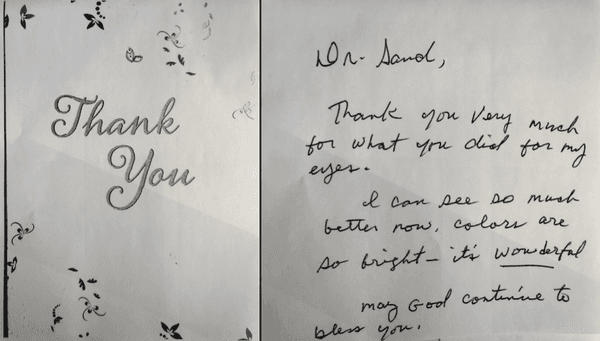 Thank
You
Dr. Sand,
Thank you very much
for what you did for my
eyes.
I can see so much
better now, colors are
so bright - it's wonderful
may God continue to
bless you.